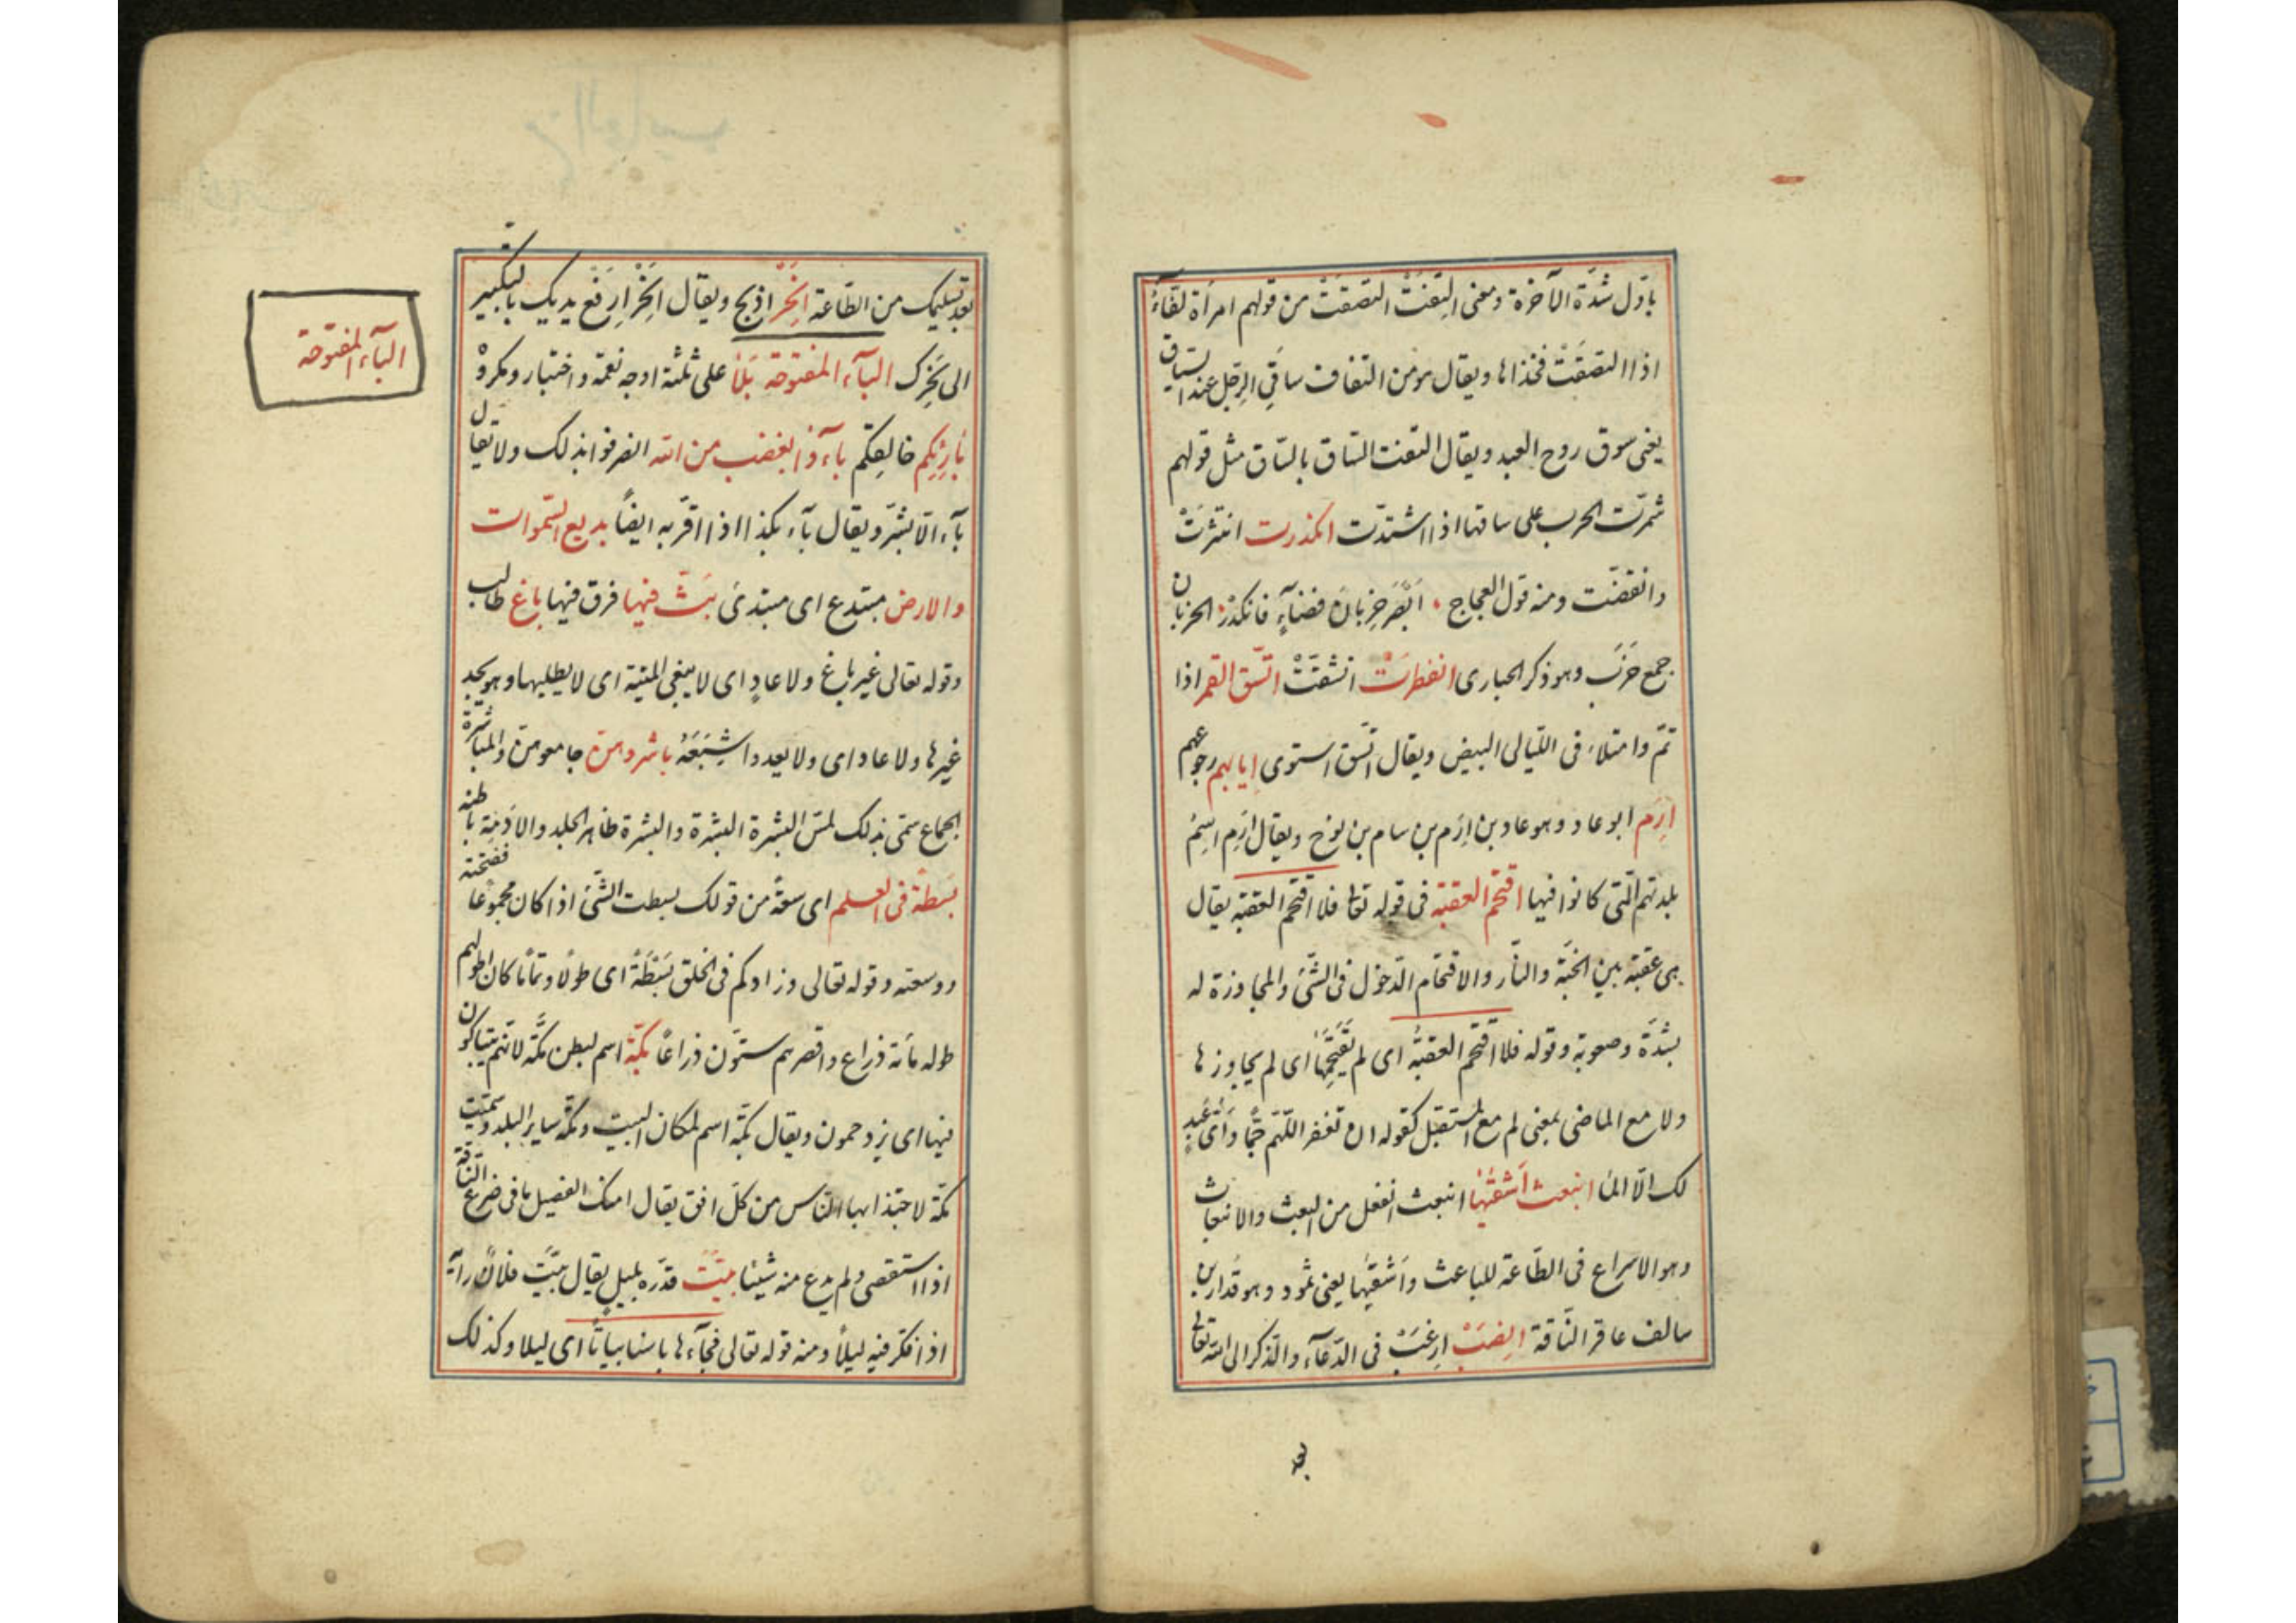 باوّل شدّة الآخرة ومعنى التفّت التصقت من قولهم امرأة لفّآء
اذا التصقت فخذاها ويقال هو من التفاف ساقي الرجل عند السياق
يعنى سوق روح العبد ويقال التفّت السّاق بالسّاق مثل قولهم
شمرّت الحرب على ساقها اذا اشتدّت انكدرت انتثرت
وانقضّت ومنه قول العجاج ابصر خربان فضآء فانكدر الخربان
جمع خرب وهو ذكر الحبارى انفطرت انشقّت اتّسق القمر اذا
تمّ وامتلاء فى اللّيالى البيض ويقال اتّسق استوى ايابهم رجوعهم
ارم ابو عاد وهو عاد بن ارم بن سام بن نوح ويقال ارم اسم
بلدتهم الّتى كانوا فيها اقتحم العقبة فى قوله تعا فلا اقتحم العقبة يقال
هى عقبة بين الجنّة والنّار والاقتحام الدّخول فى الشّئ والمجاوزة له
بشدّة وصعوبة وقوله فلا اقتحم العقبة اى لم يقتحمها اى لم يجاوزها
ولا مع الماضى بمعنى لم مع المستقبل كقوله ان تغفر اللّهمّ جمّا واىّ عبد
لك الّا المّا انبعث اشقيها انبعث انفعل من البعث والانبعاث
وهو الاسراع فى الطّاعة للباعث واشقيها يعنى ثمود وهو قدار بن
سالف عاقر النّاقة انصب ارغب فى الدّعآء والذّكر الى الله تعالى
بعد
بعد تسليمك من الطّاعة انحر اذبح ويقال انحر ارفع يديك بالتكبير
الى نحرك البآء المفتوحة بلآء على ثلثة اوجه نعمة واختبار ومكروه
بارئكم خالقكم بآءوا بغضب من الله انصرفوا بذلك ولا يقال
بآء الّا بشرّ ويقال بآء بكذا اذا اقرّ به ايضاً بديع السّموات
والارض مبتدع اى مبتدئ بثّ فيها فرق فيها باغ طالب
وقوله تعالى غير باغ ولا عاد اى لا يبغى الميتة اى لا يطلبها وهو يجد
غيرها ولا عاد اى ولا يعدوا شبعه باشروهنّ جامعوهنّ والمباشرة
الجماع سمّى بذلك لمسّ البشرة البشرة والبشرة ظاهر الجلد والادمة باطنه
بسطة فى العلم اى سعة من قولك بسطت الشّئ اذا كان مجموعا ففتحته
ووسعته وقوله تعالى وزادكم فى الخلق بسطة اى طولا وتماما كان اطولهم
طوله مأئة ذراع واقصرهم ستّون ذراعاً بكّة اسم لبطن مكّة لانّهم يتباكون
فيها اى يزدحمون ويقال بكّة اسم لمكان البيت ومكّة ساير البلد وسمّيت
مكّة لاجتذابها النّاس من كلّ افق يقال امتك الفصيل ما فى ضرع النّاقة
اذا استقصى ولم يدع منه شيئا بيّت قدّره بليل يقال بيّت فلان رأيه
اذا فكّر فيه ليلاً ومنه قوله تعالى فجآءها باسنا بياتاً اى ليلا وكذلك
البآء المفتوحة